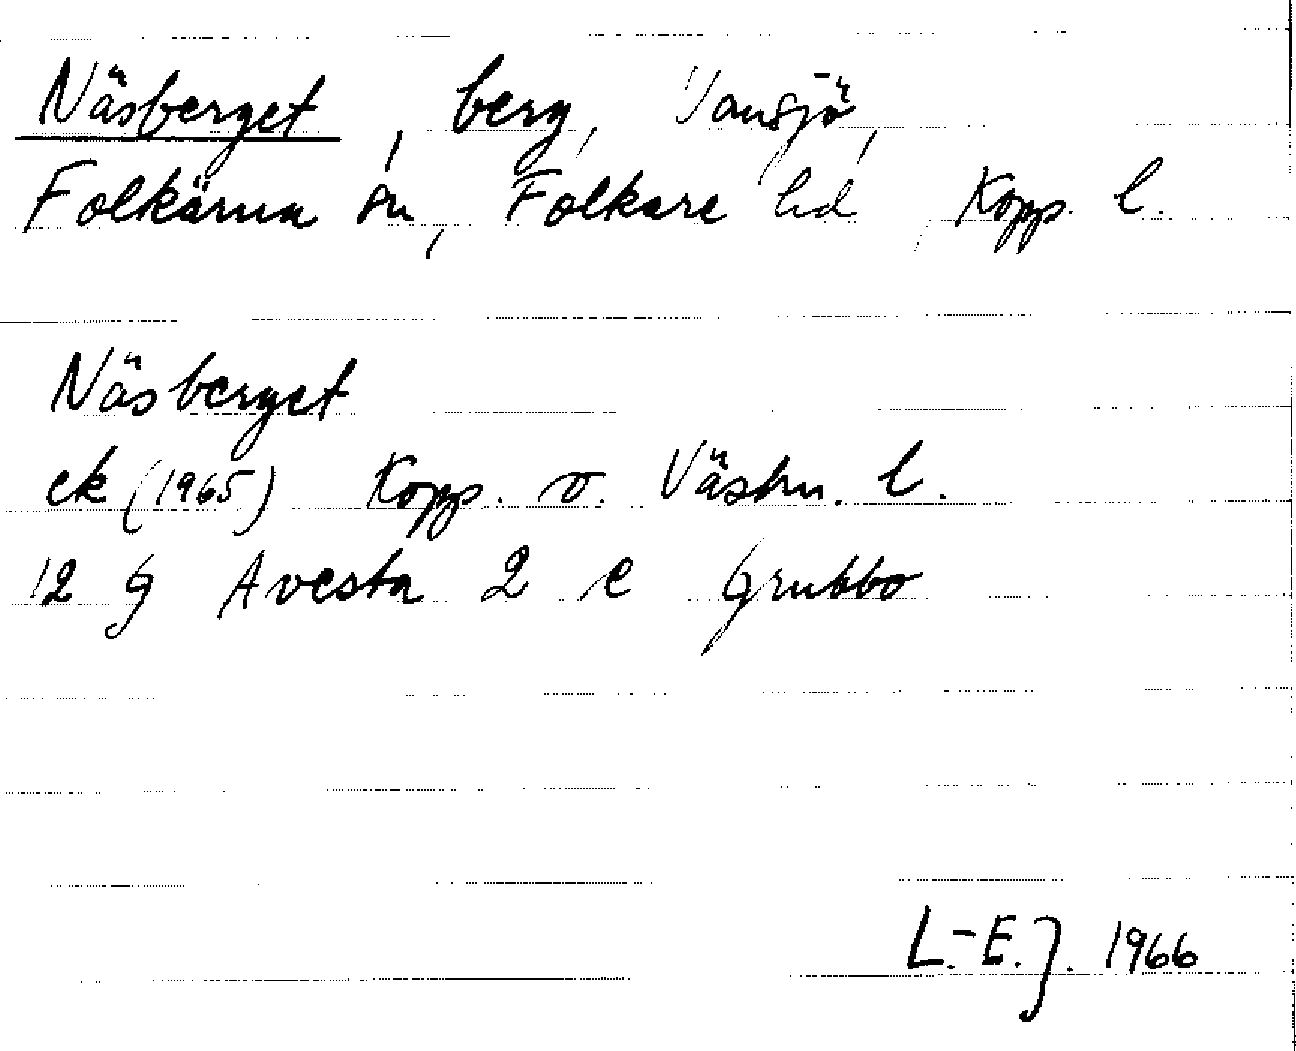 Näsberget, berg, Vansjö,
Folkärna sn, Folkare hd, Kopp. l.
Näsberget
ek (1965) Kopp. o. Västm. l.
12 G Avesta 2 e Grubbo
L.-E.J. 1966